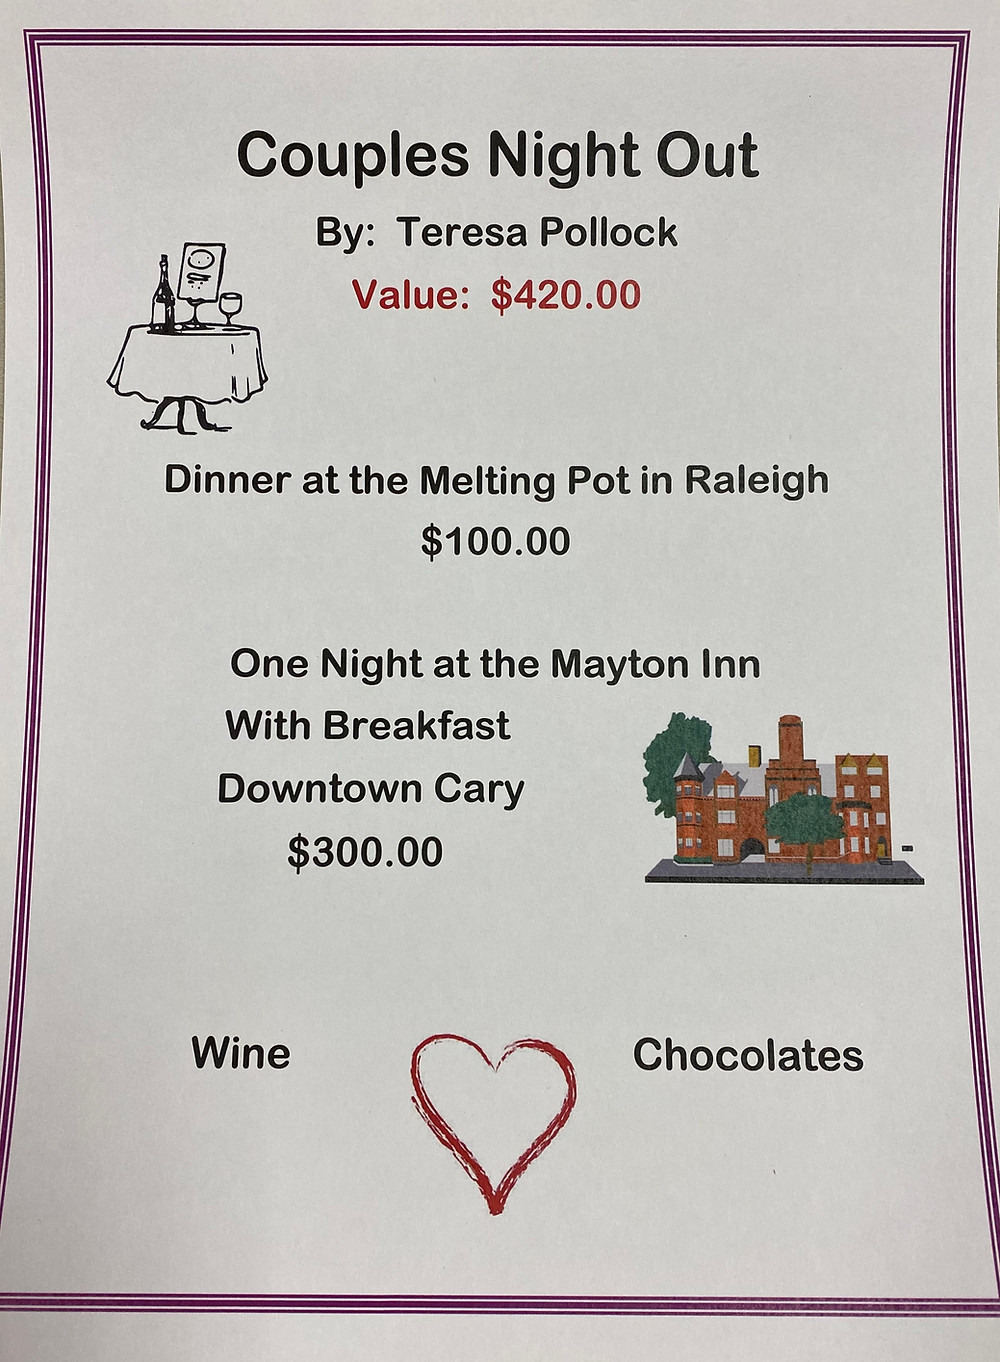 Couples Night Out
By: Teresa Pollock
Value: $420.00
Dinner at the Melting Pot in Raleigh
$100.00
One Night at the Mayton Inn
With Breakfast
Downtown Cary
$300.00
Wine
Chocolates